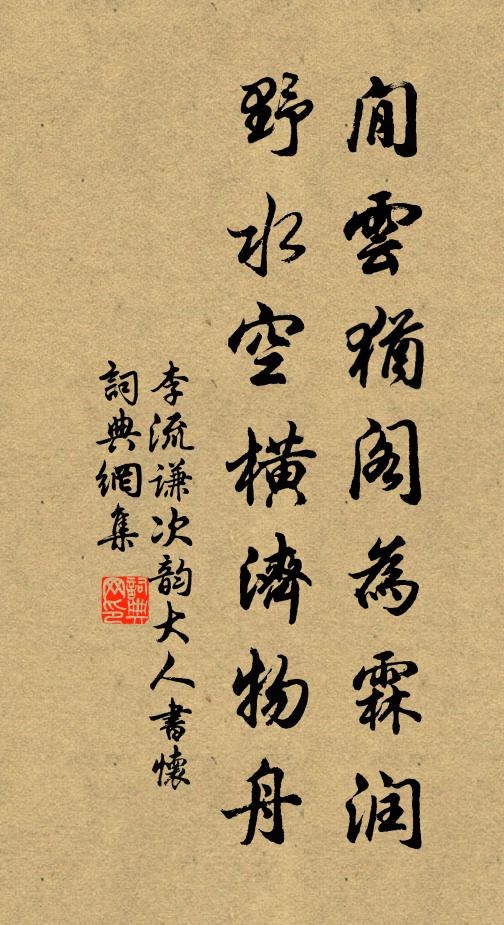 閒雲猶閣為霖潤
野水空橫濟物舟
李流谦次韵大人書懷
詞典網集
詞典網印